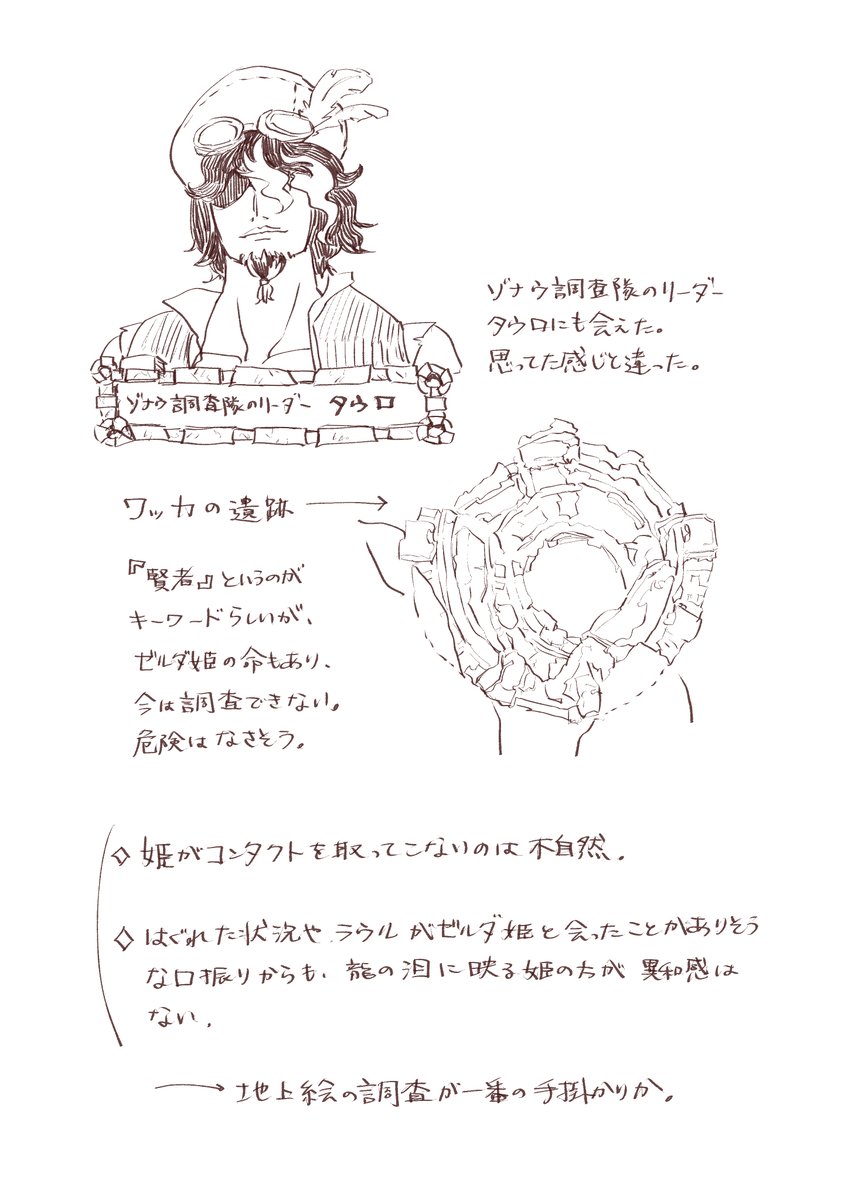 ゾナウ調査隊のリーダー
タウロにも会えた。
思ってた感じと違った。
ゾナウ調査隊のリーダー タウロ
ワッカの遺跡 →
『賢者』というのが
キーワードらしいが、
ゼルダ姫の命もあり、
今は調査できない。
危険はなさそう。
◇ 姫がコンタクトを取ってこないのは不自然。
◇ はぐれた状況や、ラウルがゼルダ姫と会ったことがありそう
な口振りからも、龍の泪に映る姫の方が異和感は
ない。
→ 地上絵の調査が一番の手掛かりか。